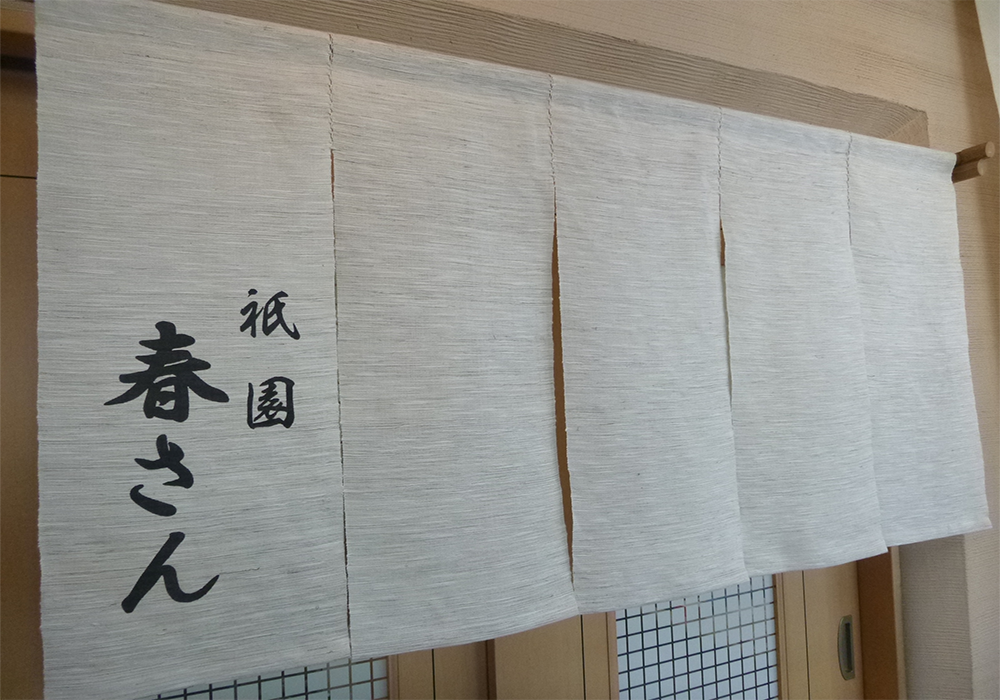 祇園
春さん